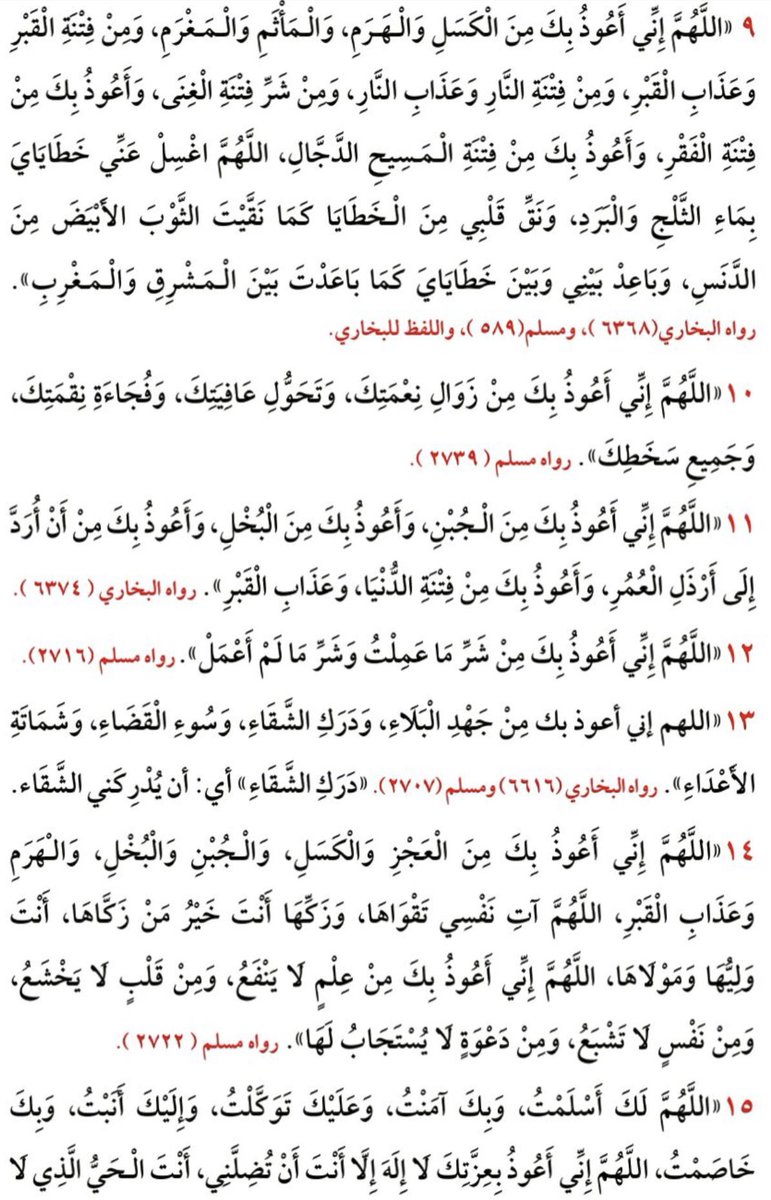 ٩ «اللَّهُمَّ إِنِّي أَعُوذُ بِكَ مِنَ الْكَسَلِ وَالْهَرَمِ، وَالْمَأْثَمِ وَالْمَغْرَمِ، وَمِنْ فِتْنَةِ الْقَبْرِ
وَعَذَابِ الْقَبْرِ، وَمِنْ فِتْنَةِ النَّارِ وَعَذَابِ النَّارِ، وَمِنْ شَرِّ فِتْنَةِ الْغِنَى، وَأَعُوذُ بِكَ مِنْ
فِتْنَةِ الْفَقْرِ، وَأَعُوذُ بِكَ مِنْ فِتْنَةِ الْمَسِيحِ الدَّجَّالِ، اللَّهُمَّ اغْسِلْ عَنِّي خَطَايَايَ
بِمَاءِ الثَّلْجِ وَالْبَرَدِ، وَنَقِّ قَلْبِي مِنَ الْخَطَايَا كَمَا نَقَّيْتَ الثَّوْبَ الأَبْيَضَ مِنَ
الدَّنَسِ، وَبَاعِدْ بَيْنِي وَبَيْنَ خَطَايَايَ كَمَا بَاعَدْتَ بَيْنَ الْمَشْرِقِ وَالْمَغْرِبِ».
رواه البخاري(٦٣٦٨ )، ومسلم(٥٨٩ )، واللفظ للبخاري.
١٠ «اللَّهُمَّ إِنِّي أَعُوذُ بِكَ مِنْ زَوَالِ نِعْمَتِكَ، وَتَحَوُّلِ عَافِيَتِكَ، وَفُجَاءَةِ نِقْمَتِكَ،
وَجَمِيعِ سَخَطِكَ». رواه مسلم ( ٢٧٣٩ ).
١١ «اللَّهُمَّ إِنِّي أَعُوذُ بِكَ مِنَ الْجُبْنِ، وَأَعُوذُ بِكَ مِنَ الْبُخْلِ، وَأَعُوذُ بِكَ مِنْ أَنْ أُرَدَّ
إِلَى أَرْذَلِ الْعُمُرِ، وَأَعُوذُ بِكَ مِنْ فِتْنَةِ الدُّنْيَا، وَعَذَابِ الْقَبْرِ». رواه البخاري ( ٦٣٧٤ ).
١٢ «اللَّهُمَّ إِنِّي أَعُوذُ بِكَ مِنْ شَرِّ مَا عَمِلْتُ وَشَرِّ مَا لَمْ أَعْمَلْ». رواه مسلم (٢٧١٦).
١٣ «اللهم إني أعوذ بك مِنْ جَهْدِ الْبَلَاءِ، وَدَرَكِ الشَّقَاءِ، وَسُوءِ الْقَضَاءِ، وَشَمَاتَةِ
الأَعْدَاءِ». رواه البخاري (٦٦١٦) ومسلم (٢٧٠٧). «دَرَكِ الشَّقَاءِ» أي: أن يُدْرِكَني الشَّقَاء.
١٤ «اللَّهُمَّ إِنِّي أَعُوذُ بِكَ مِنَ الْعَجْزِ وَالْكَسَلِ، وَالْجُبْنِ وَالْبُخْلِ، وَالْهَرَمِ
وَعَذَابِ الْقَبْرِ، اللَّهُمَّ آتِ نَفْسِي تَقْوَاهَا، وَزَكِّهَا أَنْتَ خَيْرُ مَنْ زَكَّاهَا، أَنْتَ
وَلِيُّهَا وَمَوْلَاهَا، اللَّهُمَّ إِنِّي أَعُوذُ بِكَ مِنْ عِلْمٍ لَا يَنْفَعُ، وَمِنْ قَلْبٍ لَا يَخْشَعُ،
وَمِنْ نَفْسٍ لَا تَشْبَعُ، وَمِنْ دَعْوَةٍ لَا يُسْتَجَابُ لَهَا». رواه مسلم ( ٢٧٢٢ ).
١٥ «اللَّهُمَّ لَكَ أَسْلَمْتُ، وَبِكَ آمَنْتُ، وَعَلَيْكَ تَوَكَّلْتُ، وَإِلَيْكَ أَنَبْتُ، وَبِكَ
خَاصَمْتُ، اللَّهُمَّ إِنِّي أَعُوذُ بِعِزَّتِكَ لَا إِلَهَ إِلَّا أَنْتَ أَنْ تُضِلَّنِي، أَنْتَ الْحَيُّ الَّذِي لَا